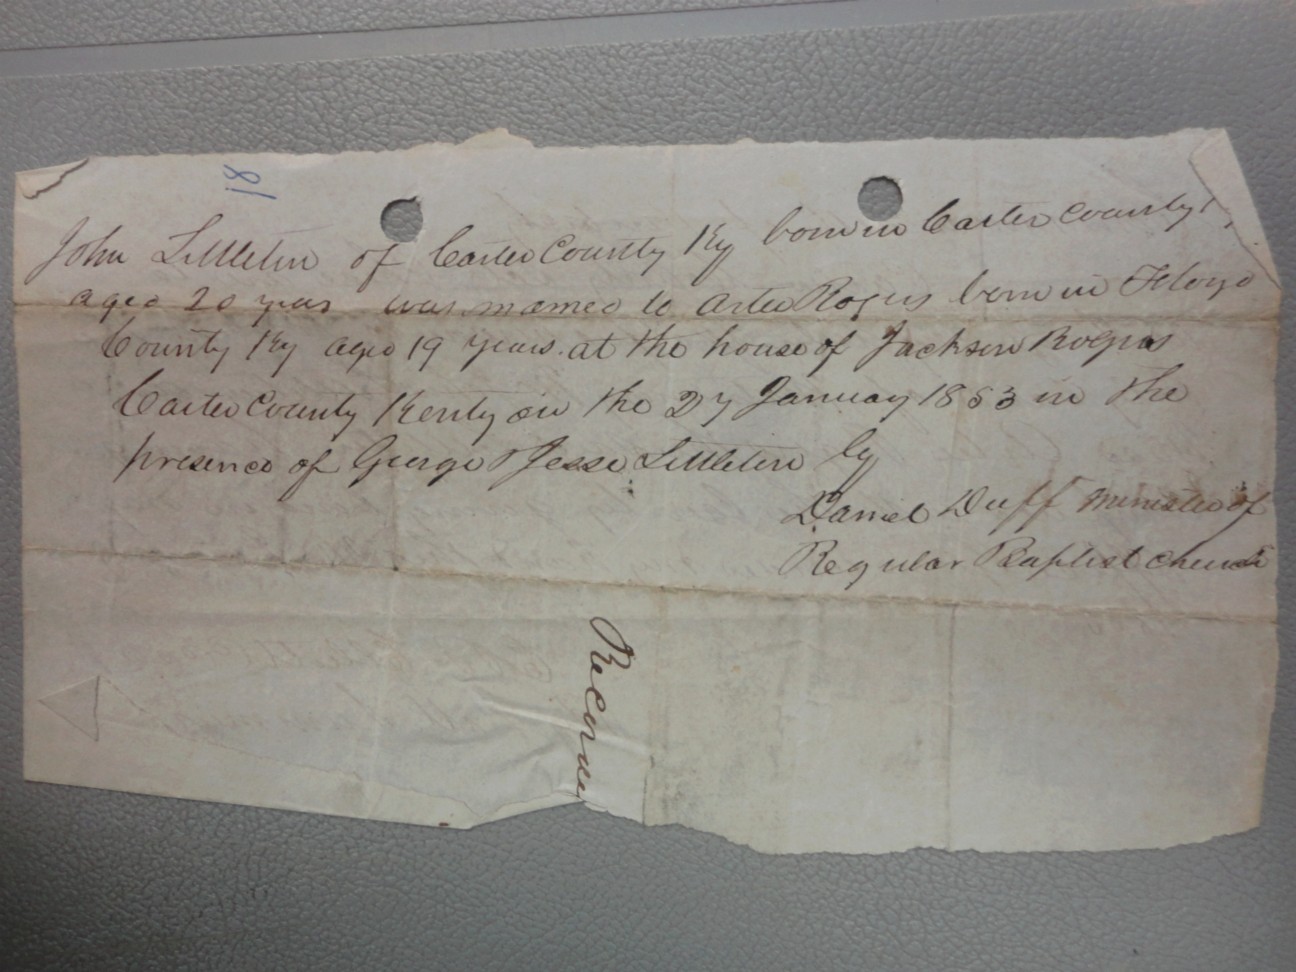 18
John Littleton of Carter County Ky born in Carter County
aged 20 years was married to Arter Rogers born in Floyd
County Ky aged 19 years. at the house of Jackson Rogers
Carter County Kenty on the 27 January 1853 in the
presence of George & Jesse Littleton by
Daniel Duff Minister of
Regular Baptist Church
Recorded